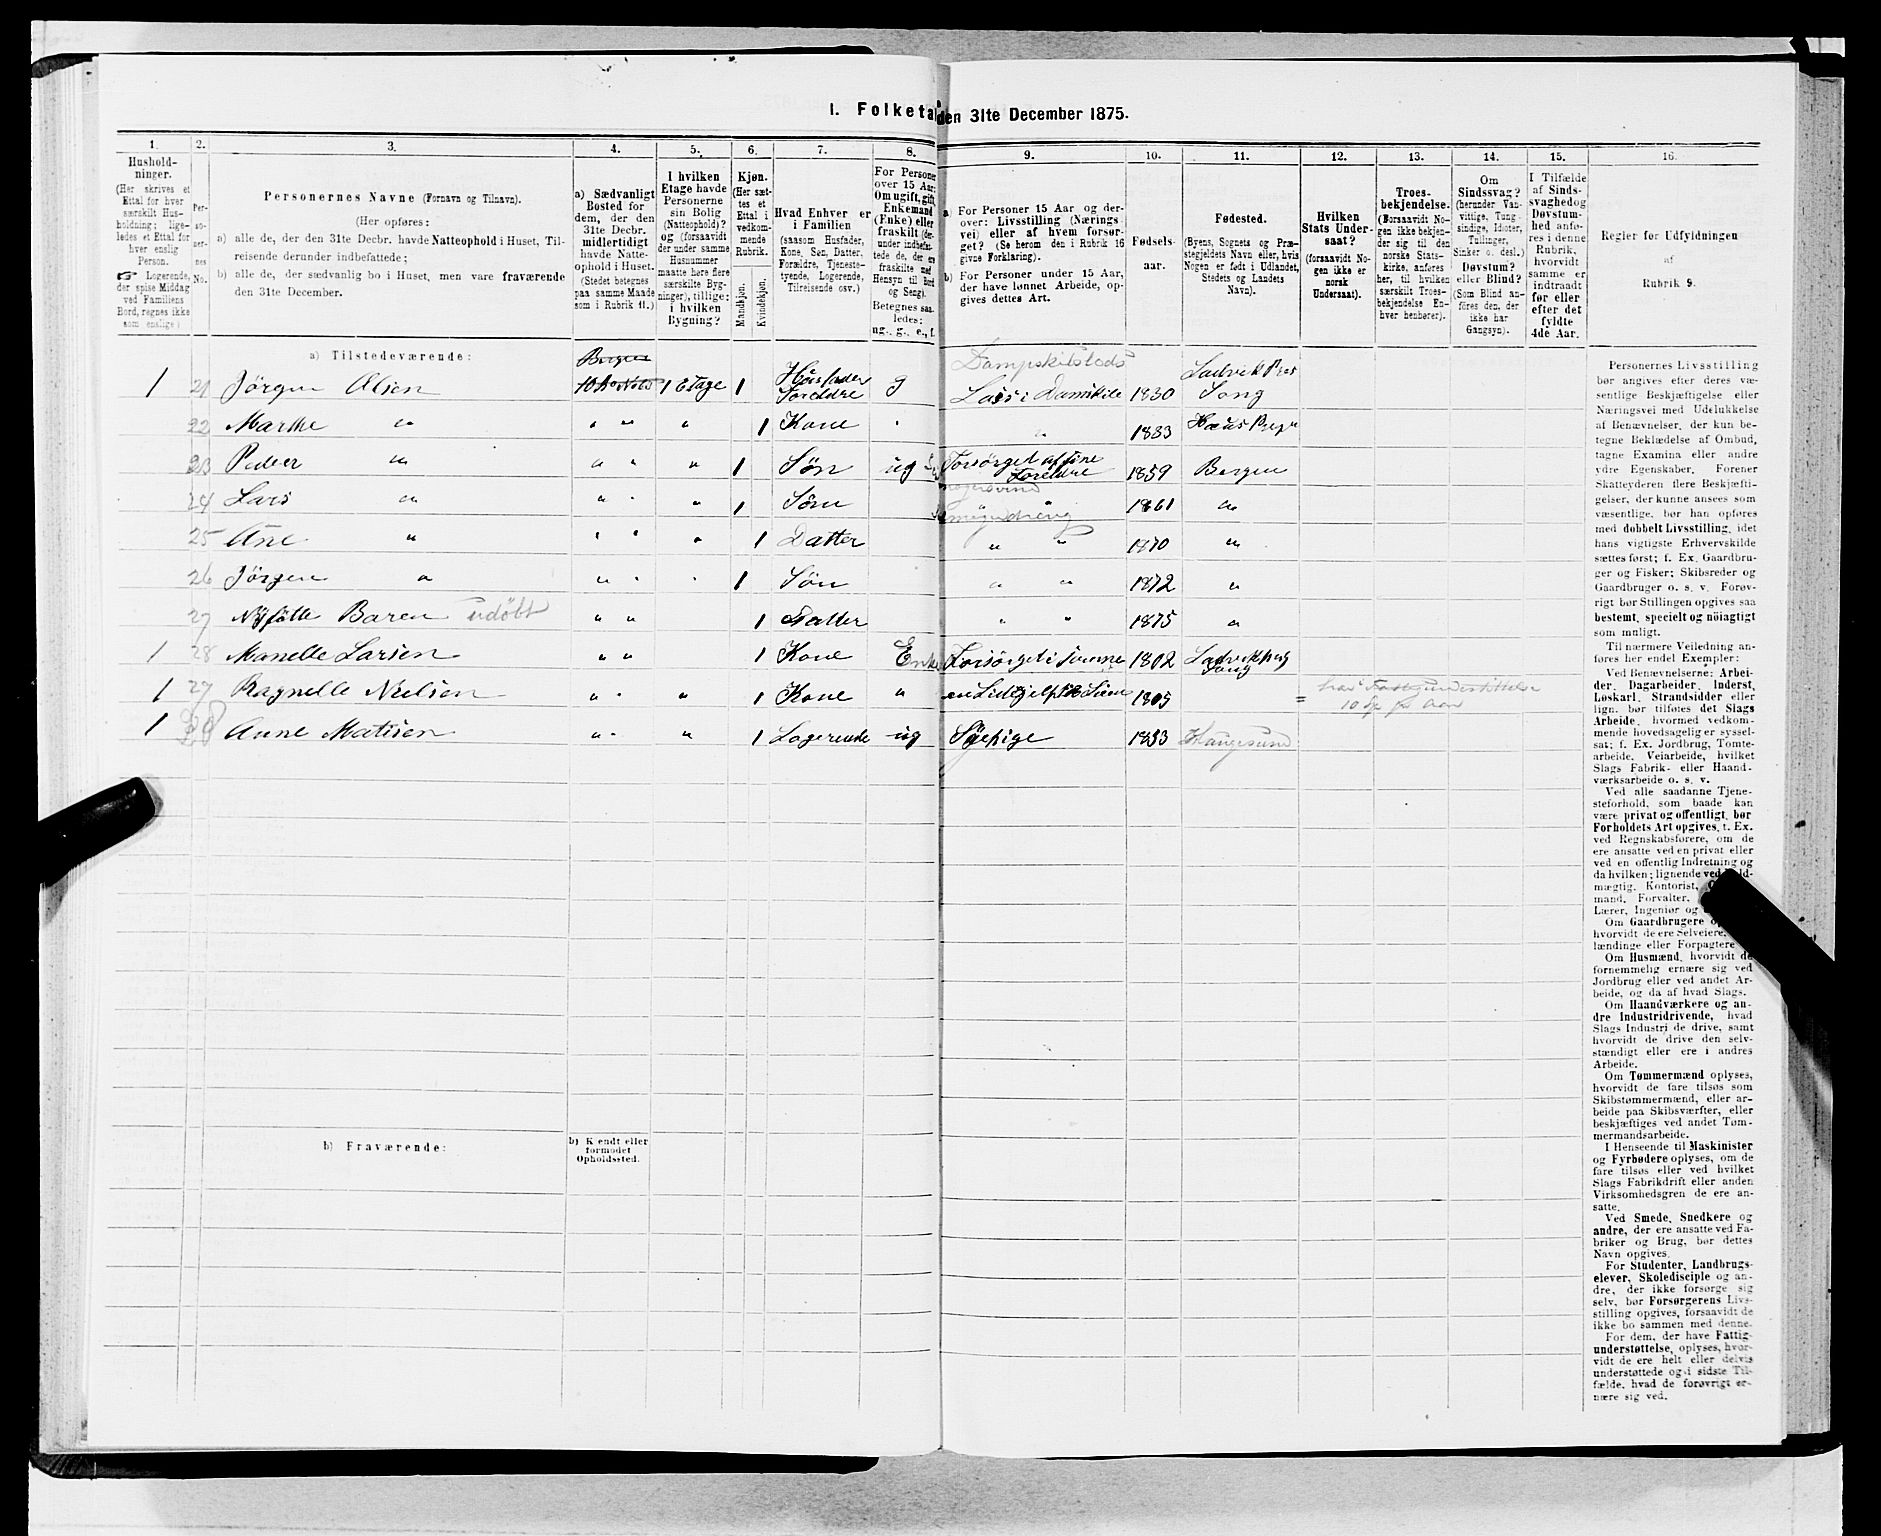 I. Folketa
den 31te December 1875.
1.
2.
3.
4.
5.
6.
7.
8.
9.
10.
11.
12.
13.
14.
15.
16.
Hushold-
ninger.
(Her skrives et
Ettal for hver
særskilt Hus-
holdning; lige-
ledes et Ettal for
hver enslig
Person.
☞ Logerende,
der spise Middag
ved Familiens
Bord, regnes ikke
som enslige)
Per-
so-
ner-
nes
No.
Personernes Navne (Fornavn og Tilnavn).
(Her opføres:
a) alle de, der den 31te Decbr. havde Natteophold i Huset, Til-
reisende derunder indbefattede;
b) alle de, der sædvanlig bo i Huset, men vare fraværende
den 31te December.
a) Sædvanligt
Bosted for
dem, der den
31te Decbr.
midlertidigt
havde Natte-
ophold i Huset.
(Stedet betegnes
paa samme Maade
som i Rubrik 11.)
I hvilken
Etage havde
Personerne
sin Bolig
(Natteophold)?
og (forsaavidt
der under samme
Husnummer
maatte høre flere
særskilte Byg-
ninger), tillige:
i hvilken
Bygning?
Kjøn.
(Her sæt-
tes et
Ettal i
vedkom-
mende
Rubrik.
Mandkjøn.
Kvindekjøn.
Hvad Enhver er
i Familien
(saasom Husfader,
Kone, Søn, Datter,
Forældre, Tjeneste-
tyende, Logerende,
Tilreisende osv.)
For Personer
over 15 Aar:
Om ugift, gift,
Enkemand
(Enke) eller
fraskilt (der-
under indbefat-
tede de, der ere
fraskilte med
Hensyn til Bord
og Seng).
Betegnes saa-
ledes:
ug., g., e., f.
a) For Personer 15 Aar og der-
over: Livsstilling (Nærings-
vei) eller af hvem forsør-
get? (Se herom den i Rubrik 16
givne Forklaring).
b) For Personer under 15 Aar,
der have lønnet Arbeide, op-
gives dettes Art.
Fødsels-
aar.
Fødested.
(Byens, Sognets og Præ-
stegjeldets Navn eller, hvis
Nogen er født i Udlandet,
Stedets og Landets
Navn).
Hvilken
Stats Under-
saat?
(forsaavidt No-
gen ikke er
norsk
Undersaat).
Troes-
bekjendelse.
(Forsaavidt No-
gen ikke bekjen-
der sig til den
norske Stats-
kirke, anføres
her, til hvilken
særskilt Troes-
bekjendelse En-
hver henhører).
Om
Sindssvag?
(herunder Van-
vittige, Tung-
sindige, Idioter,
Tullinger,
Sinker o. desl.)
Døvstum?
eller Blind?
(Som Blind an-
føres den, der
ikke har
Gangsyn).
I Tilfælde
af Sinds-
svaghed og
Døvstum-
hed anfø-
res i denne
Rubrik,
hvorvidt
samme er
indtraadt
før eller
efter det
fyldte
4de Aar.
Regler før Udfyldningen
af
Rubrik 9.
a) Tilstedeværende:
Bergen Dampskibslods
1 21 Jörgen Olsen 1 Etage 1 Husfader Foreldre g Lods i Damskibe 1830 Ladvik Præs Song
22 Marthe " " " " 1 Kone " " 1833 Haus Preg
23 Peder " " " " 1 Sön ug Forsörget af sine Foreldre 1859 Bergen
24 Lars " " " " 1 Sön " 1861 "
25 Ane " " " " 1 Datter " " 1870 "
26 Jörgen " " " " 1 Sön " " 1872 "
27 Nyfötte Baren udöbt " " 1 Datter " " 1875 "
1 28 Manelle Larsen " " 1 Kone Enke Forsörget i 1802 Ladvik Song
1 27 Ragnelle Nielsen " " " 1 Kone " 1805 = har Fattigunderstöttelse
10 Sp pr Aar
1 28 Anne Matisen " " " 1 Logerende ug Syepige 1833 Haugesund
b) Fraværende:
b) Kjendt eller
formodet
Opholdssted.
Personernes Livsstilling
bør angives efter deres væ-
sentlige Beskjæftigelse eller
Næringsvei med Udelukkelse
af Benævnelser, der kun be-
tegne Beklædelse af Ombud,
tagne Examina eller andre
ydre Egenskaber. Forener
Skatteyderen flere Beskjæfti-
gelser, der kunne ansees som
væsentlige, bør han opføres
med dobbelt Livsstilling, idet
hans vigtigste Erhvervskilde
sættes først; f. Ex. Gaardbru-
ger og Fisker; Skibsreder og
Gaardbruger o. s. v. Forøv-
rigt bør Stillingen opgives saa
bestemt, specielt og nöiagtigt
som muligt.
Til nærmere Veiledning an-
føres her endel Exempler:
Ved Benævnelserne: Arbei-
der, Dagarbeider, Inderst,
Løskarl, Strandsidder eller
lign. bør tilføies det Slags
Arbeide, hvormed vedkom-
mende hovedsagelig er syssel-
sat; f. Ex. Jordbrug, Tomte-
arbeide, Veiarbeide, hvilket
Slags Fabrik- eller Haand-
værksarbeide o. s. v.
Ved alle saadanne Tjene-
steforhold, som baade kan
være privat og offentligt, bør
Forholdets Art opgives, t. Ex.
ved Regnskabsførere, om de
ere ansatte ved en privat eller
ved en offentlig Indretning og
da hvilken; lignende ved
mægtig, Kontorist,
mand, Forvalter,
Lærer, Ingeniør og
Om Gaardbrugere
hvorvidt de ere Selveiere,
lændinge eller Forpagtere
Om Husmænd, hvorvidt de
fornemmelig ernære sig ved
Jordbrug eller ved andet Ar-
beide, og da af hvad Slags.
Om Haandværkere og an-
dre Industridrivende, hvad
Slags Industri de drive, samt
hvorvidt de drive den selv-
stændigt eller ere i andres
Arbeide.
Om Tømmermænd oplyses,
hvorvidt de fare tilsøs som
Skibstømmermænd, eller ar-
beide paa Skibsværfter, eller
beskjæftiges ved andet Tøm-
mermandsarbeide.
I Henseende til Maskinister
og Fyrbødere oplyses, om de
fare tilsøs eller ved hvilket
Slags Fabrikdrift eller anden
Virksomhedsgren de ere an-
satte.
Ved Smede, Snedkere og
andre, der ere ansatte ved Fa-
briker og Brug, bør dettes
Navn opgives.
For Studenter, Landbrugs-
elever, Skoledisciple og an-
dre, der ikke forsørge sig
selv, bør Forsørgerens Livs-
stilling opgives, forsaavidt de
ikke bo sammen med denne.
For dem, der have Fattig-
understøttelse, oplyses, hvor-
vidt de ere helt eller delvis
understøttede og i sidste Til-
fælde, hvad de forøvrigt er-
nære sig ved.